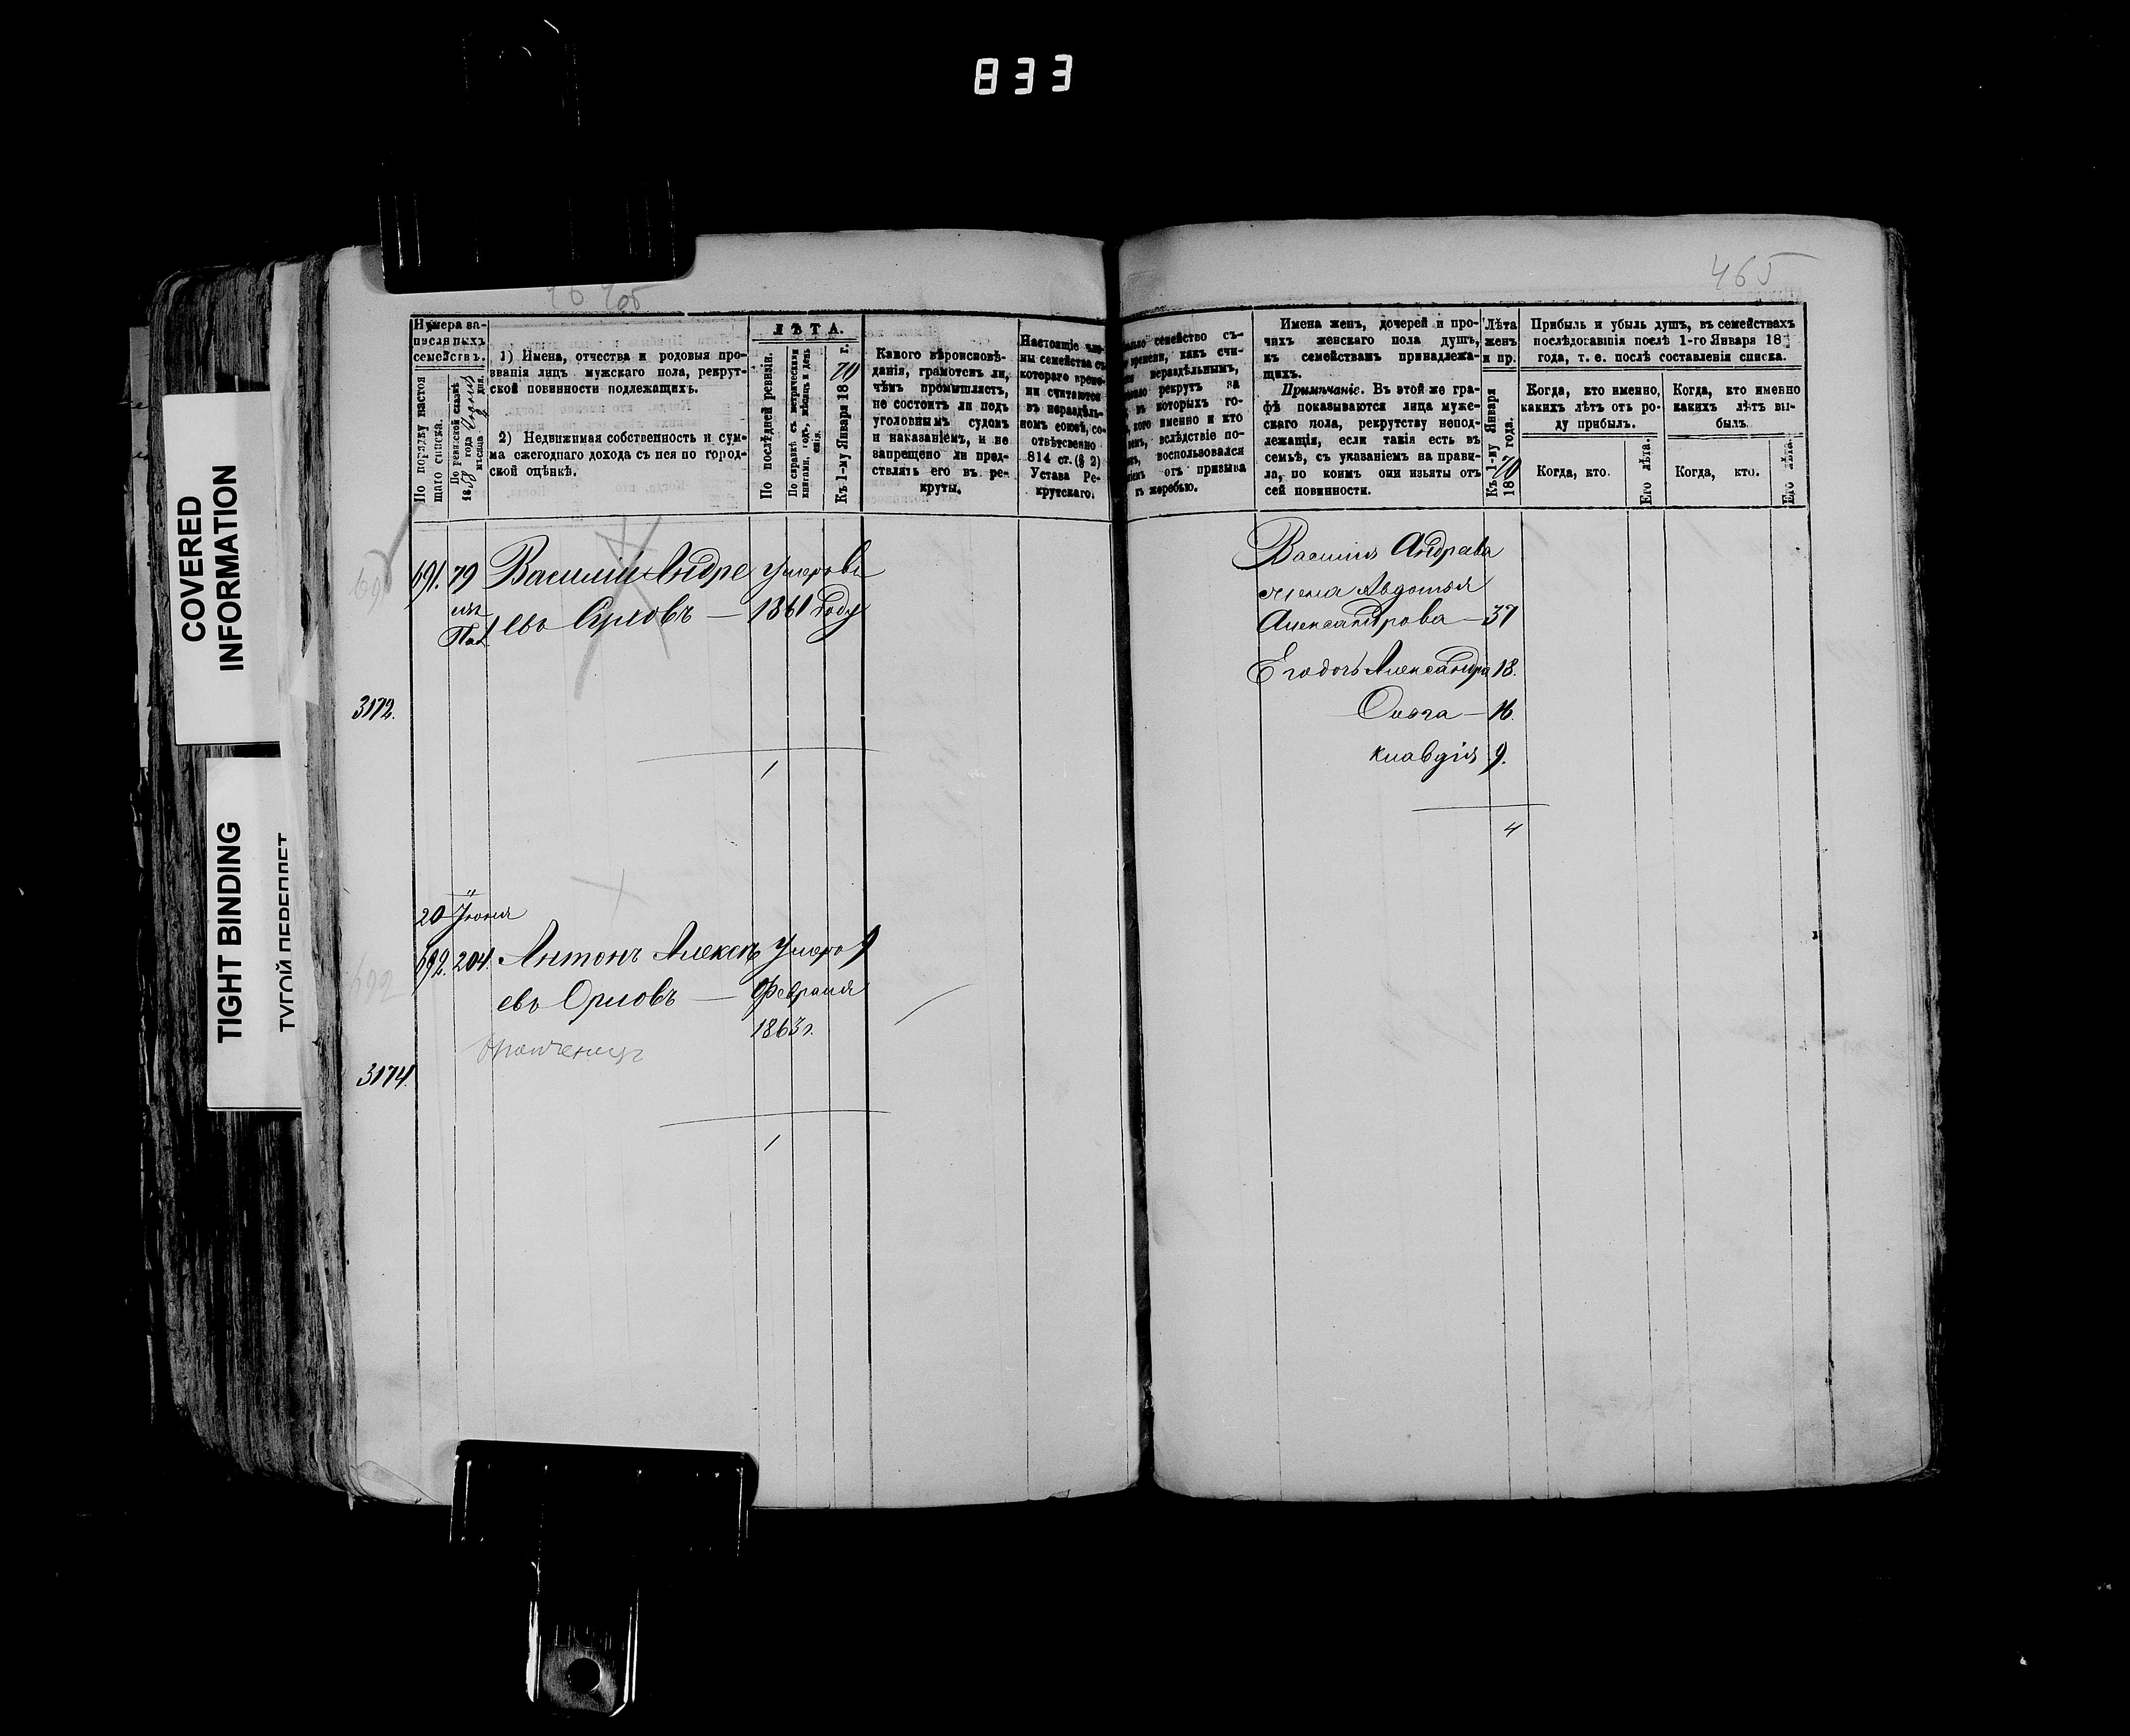 833
465
COVERED
INFORMATION
TIGHT BINDING
ТУГОЙ ПЕРЕПЛЕТ
Нумера за-
писанныхъ
семействъ.
По порядку настоя
щаго списка.
По ревизской сказкѣ
1858 года
мѣсяца дня.
1) Имена, отчества и родовыя про-
званія лицъ мужскаго пола, рекрут-
ской повинности подлежащихъ.
2) Недвижимая собственность и сум-
ма ежегоднаго дохода съ нея по город-
ской оцѣнкѣ.
ЛѢТА.
По послѣдней ревизіи.
По справкѣ съ метрическими
книгами, годъ, мѣсяцъ и день
Къ 1-му Января 1870 г.
Какого вѣроисповѣ-
данія, грамотенъ ли,
чѣмъ промышляетъ,
не состоитъ ли подъ
уголовнымъ судомъ
и наказаніемъ, и не
запрещено ли пред-
ставлять его въ ре-
круты.
Настоящіе чле-
ны семейства съ
котораго време-
ни считаются
въ нераздѣль-
номъ союзѣ, со-
отвѣтсвенно
814 ст. (§ 2)
Устава Ре-
крутскаго.
семейство съ-
времени, какъ счи-
нераздѣльнымъ,
рекрутъ за
въ которыхъ го-
кого именно и кто
вслѣдствіе по-
воспользовался
отъ призыва
къ жеребью.
Имена женъ, дочерей и про-
чихъ женскаго пола душъ,
къ семействамъ принадлежа-
щихъ.
Примѣчаніе. Въ этой же гра-
фѣ показываются лица муже-
скаго пола, рекрутству непод-
лежащія, если такія есть въ
семьѣ, съ указаніемъ на прави-
ла, по коимъ они изъяты отъ
сей повинности.
Лѣта
женъ
и пр.
Къ 1-му Января
1870 года.
Прибыль и убыль душъ, въ семействахъ
послѣдовавшія послѣ 1-го Января 18
года, т. е. послѣ составленія списка.
Когда, кто именно,
какихъ лѣтъ отъ ро-
ду прибылъ.
Когда, кто.
Его лѣта.
Когда, кто именно
какихъ лѣтъ вы-
былъ
Когда, кто.
Его лѣта.
691. 79 Василій Андре умеръ въ
евъ Орловъ — 1861 году
3172.
1
Василія Андреева
жена Авдотья
Александрова — 37
Его дочь Александра 18.
Ольга — 16.
Клавдія 9.
4
20 Іюня
692. 204. Антонъ Алексѣ Умеръ 9
евъ Орловъ — Февраля
1863 г.
692
3174.
1